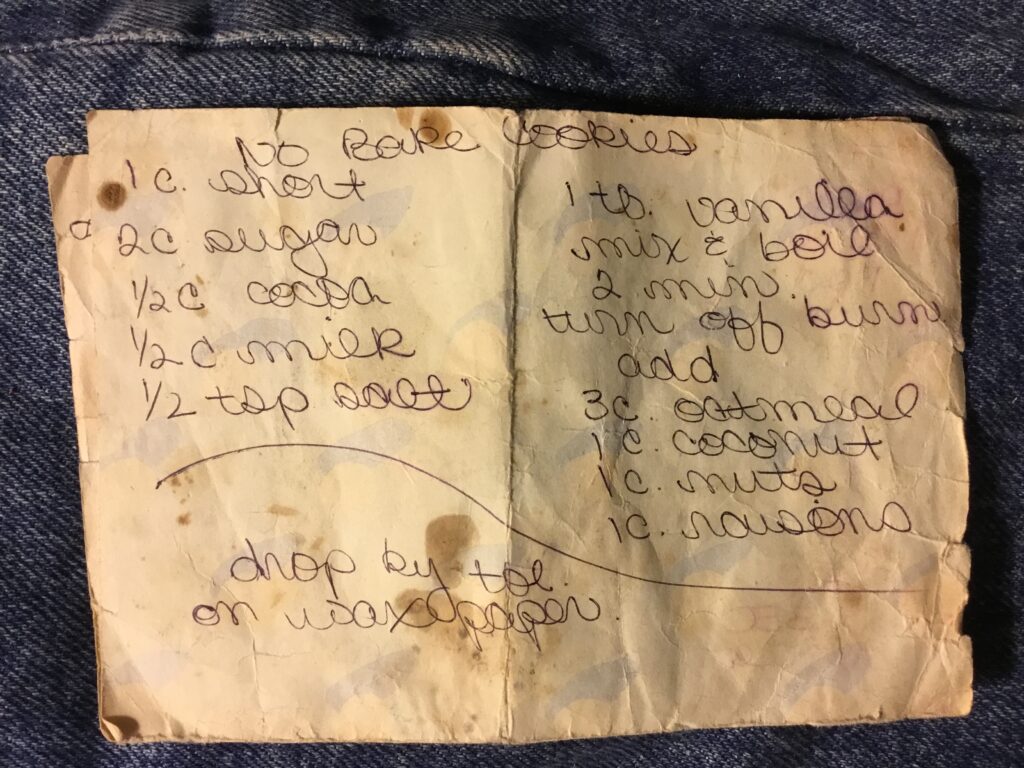 No Bake Cookies
1 c. short
2c sugar
1/2 c cocoa
1/2 c milk
1/2 tsp salt
1 ts. vanilla
mix & boil
2 min.
turn off burn
add
3c. oatmeal
1c. coconut
1c. nuts
1c. raisons
drop by
on wax paper.